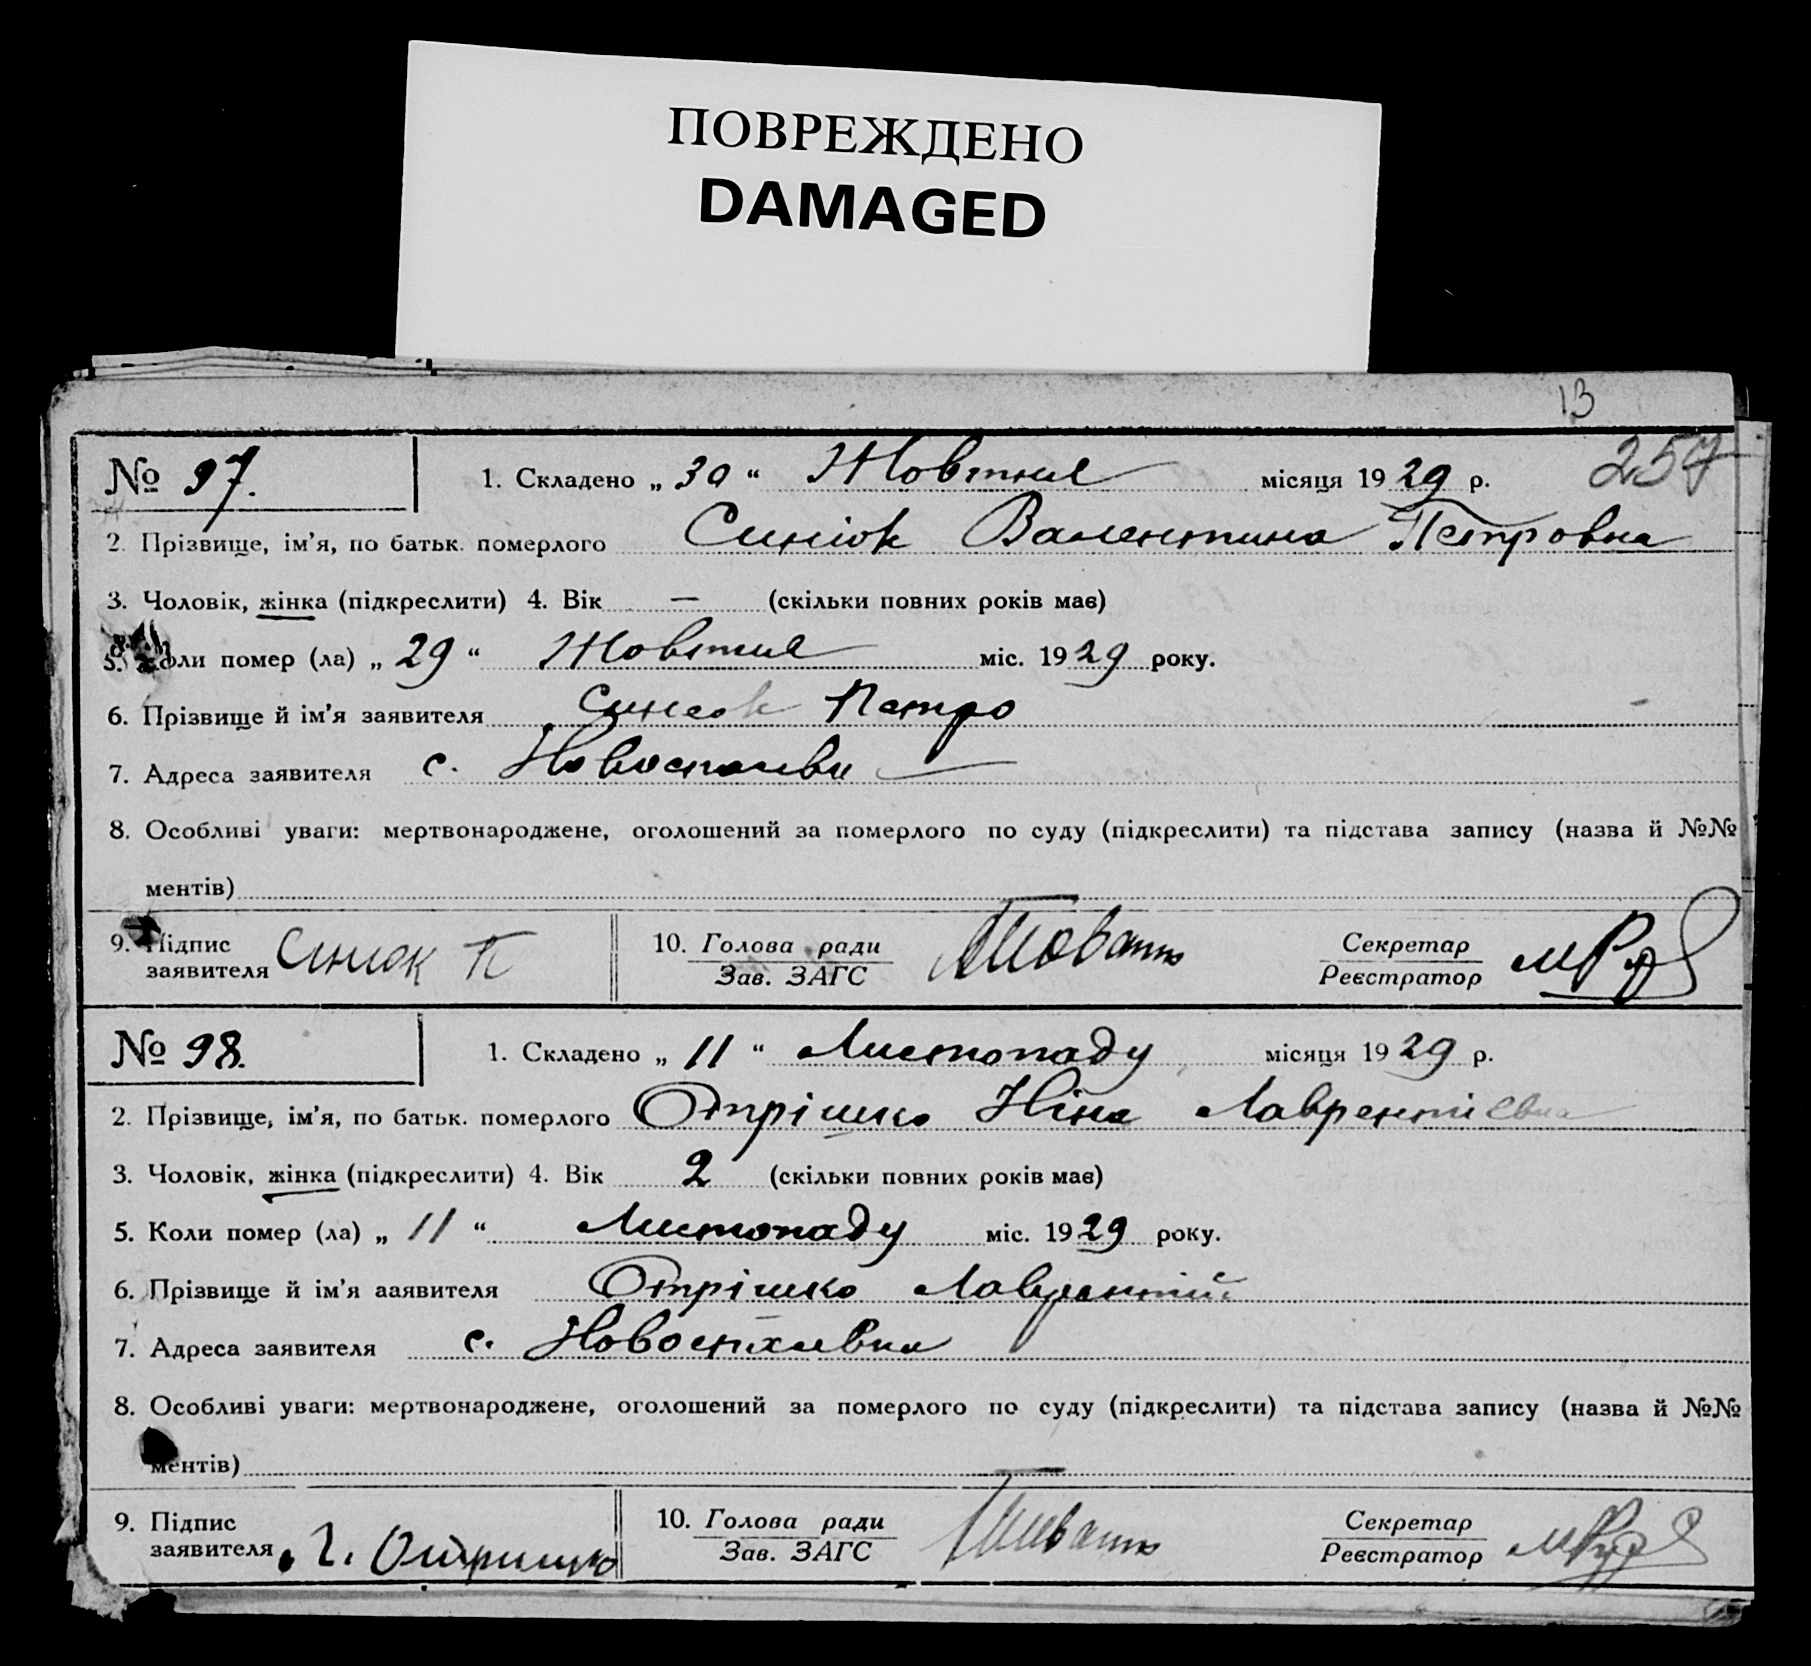 ПОВРЕЖДЕНО
DAMAGED
13
257
№ 97. 1. Складено „ 30 “ Жовтня місяця 1929 р.
2. Прізвище, ім'я, по батьк. померлого Синіок Валентина Петровна
3. Чоловік, жінка (підкреслити) 4. Вік — (скільки повних років має)
5. Коли помер (ла) „ 29 “ Жовтня міс. 1929 року.
6. Прізвище й ім'я заявителя Синіок Петро
7. Адреса заявителя с.
8. Особливі уваги: мертвонароджене, оголошений за померлого по суду (підкреслити) та підстава запису (назва й №№
ментів)
9. Підпис заявителя Синюк П 10. Голова ради Зав. ЗАГС Секретар Реєстратор
№ 98. 1. Складено „ 11 “ Листопаду місяця 1929 р.
2. Прізвище, ім'я, по батьк. померлого Отрішко Ніна Лаврентіевна
3. Чоловік, жінка (підкреслити) 4. Вік 2 (скільки повних років має)
5. Коли помер (ла) „ 11 “ Листопаду міс. 1929 року.
6. Прізвище й ім'я заявителя Отрішко Лаврентій
7. Адреса заявителя с.
8. Особливі уваги: мертвонароджене, оголошений за померлого по суду (підкреслити) та підстава запису (назва й №№
ментів)
9. Підпис заявителя Отришко 10. Голова ради Зав. ЗАГС Секретар Реєстратор